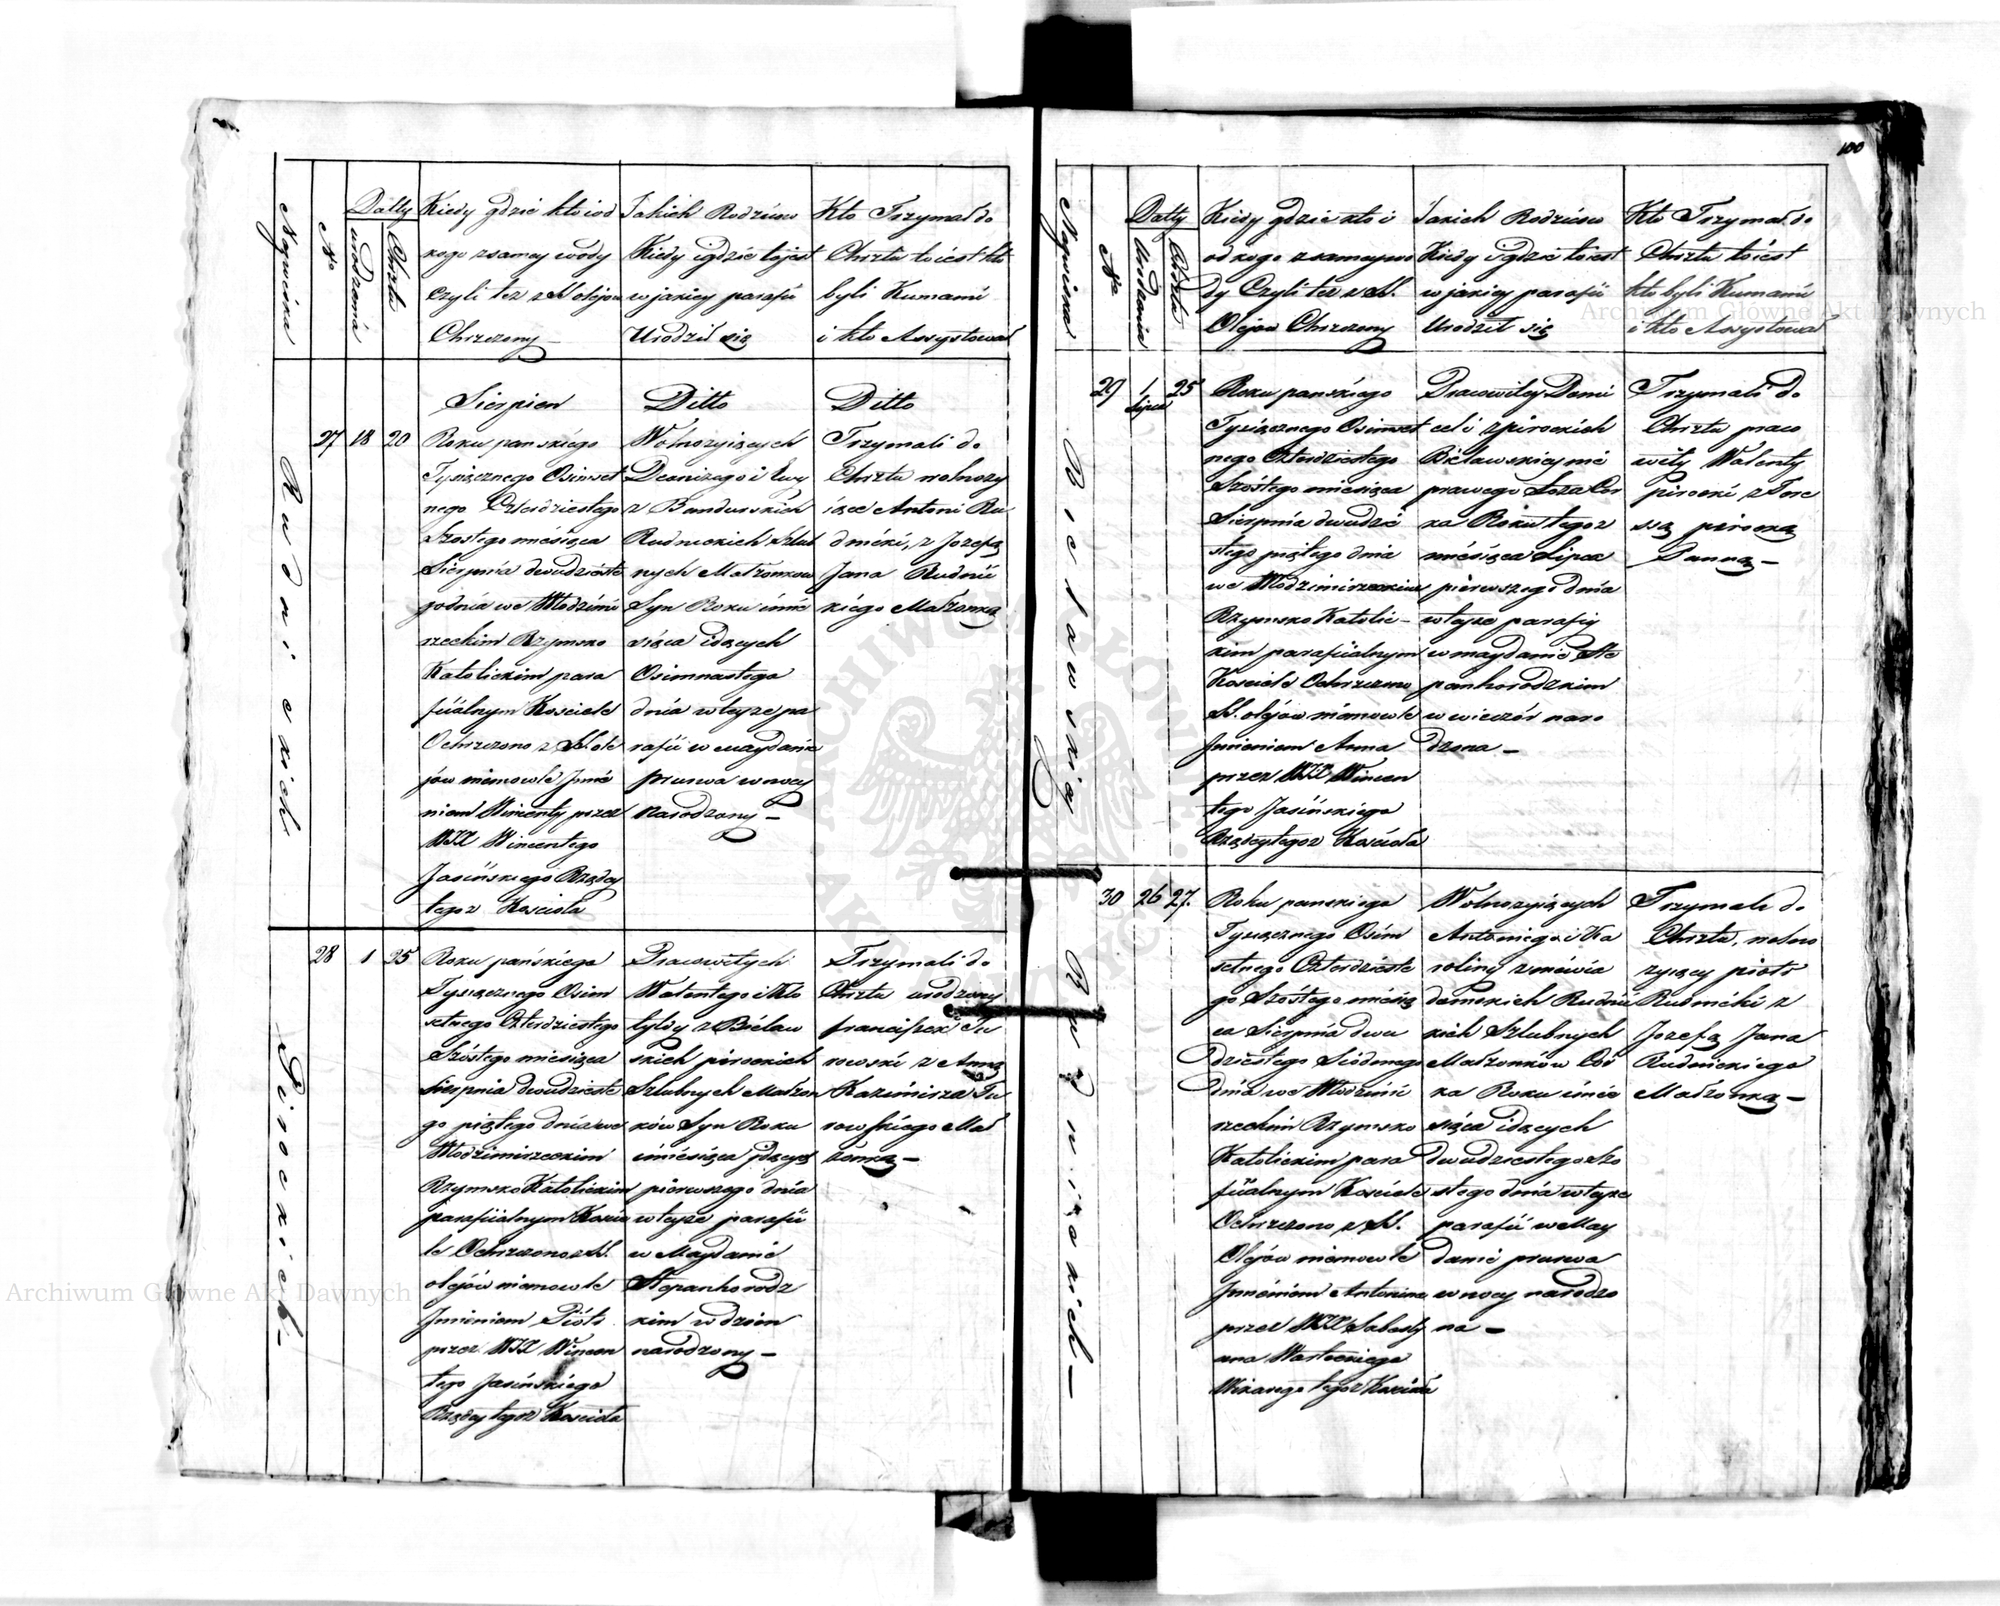 100
Nazwiska
No
Datty
urodzenia
Chrztu
Kiedy gdzie kto i od
kogo z samey wody
Czyli też z S. olejow
Chrzczony —
Jakich Rodziców
Kiedy i gdzie to jest
w jakiey parafii
Urodził się
Kto Trzymał do
Chrztu to iest kto
byli Kumami
i kto Assystował
Rudnickich
27
18
20
Sierpien
Roku panskiego
Tysiącznego Osimset
nego Czterdziestego
Szostego miesiąca
Sierpnia dwudzieste
go dnia we Włodzimi
rzeckim Rzymsko
Katolickim para
fiialnym Kosciele
Ochrzczono z S. ole
jów niemowle Jmie
niem Wincenty przez
WJX Wincentego
Jasińskiego Rządcy
tegoz Kosciola
Ditto
Wolnozyiących
Deonizego i Ewy
z Bandurskich
Rudnickich szlub
nych Małzonkow
Syn Roku i mie
siąca idących
Osimnastego
dnia w teyze pa
rafii w maydanie
prurwa w nocy
narodzony —
Ditto
Trzymali do
Chrztu wolnozy
iące Antoni Ru
dnicki, z Jozefą
Jana Rudnic
kiego Małzonką
Pirockich —
28
1
25
Roku pańskiego
Tysiącznego Osim
setnego Czterdziestego
Szóstego miesiąca
Sierpnia dwudzieste
go piątego dnia we
Włodzimirzeckim
Rzymsko Katolickim
parafiialnym Koscie
le Ochrzczono z S.
olejów niemowle
Jmieniem Piotr
przez WJX Wincen
tego Jasińskiego
Rządcy tegoz Kosciola
Pracowitych
Walentego i Klo
tyldy z Bielaw
skich pirockich
Szlubnych Małzon
ków Syn Roku
i miesiąca idących
pierwszego dnia
w teyze parafii
w Maydanie
Stepanhorodz
kim w dzien
narodzony —
Trzymali do
Chrztu urodzony
franciszek Tu
rowski z Anną
Kazimirza Tu
rowskiego Mał
zonką —
Nazwiska
No
Datty
Urodzenia
Chrztu
Kiedy gdzie kto i
od kogo z samey wo
dy Czyli też z S.
Olejow Chrzczony
Jakich Rodziców
Kiedy i gdzie to iest
w jakiey parafii
Urodził się
Kto Trzymał do
Chrztu to iest
kto byli Kumami
i kto Assystował
Bielawskiey
29
1
Lipca
25
Roku panskiego
Tysiącznego Osimset
nego Czterdziestego
Szóstego miesiąca
Sierpnia dwudzie
stego piątego dnia
we Włodzimirzeckim
Rzymsko Katolic —
kim parafiialnym
Kosciele Ochrzczono
S. olejów niemowle
Jmieniem Anna
przez WJX Wincen
tego Jasińskiego
Rządcy tegoz Kosciola
Pracowitey Domi
celi z pirockich
Bielawskiey nie
prawego Loza Cor
ka Roku tegoz
miesiąca Lipca
pierwszego dnia
w teyze parafiy
w maydanie Ste
panhorodzkim
w wieczór naro
dzona —
Trzymali do
Chrztu praco
wity Walenty
pirocki z Tere
ssą pirocką
Panną —
Rudnickich —
30
26
27.
Roku panskiego
Tysiącznego Osim
setnego Czterdzieste
go Szóstego miesią
ca Sierpnia dwu
dziestego Siódmego
dnia we Włodzimi
rzeckim Rzymsko
Katolickim para
fiialnym Kosciele
Ochrzczono z S.
Olejów niemowle
Jmieniem Antonina
przez WJX Sabesty
ana
Wikarego tegoz Kosciola
Wolnozyiących
Antoniego i Ka
roliny
Rudnic
kich Szlubnych
Małzonków Cór
ka Roku i mie
siąca idących
dwudziestego szo
stego dnia w teyze
parafii w May
danie prurwa
w nocy narodzo
na —
Trzymali do
Chrztu, wolno
zyiący piotr
Rudnicki z
Jozefą Jana
Rudnickiego
Małzonką —
Archiwum Główne Akt Dawnych
Archiwum Główne Akt Dawnych